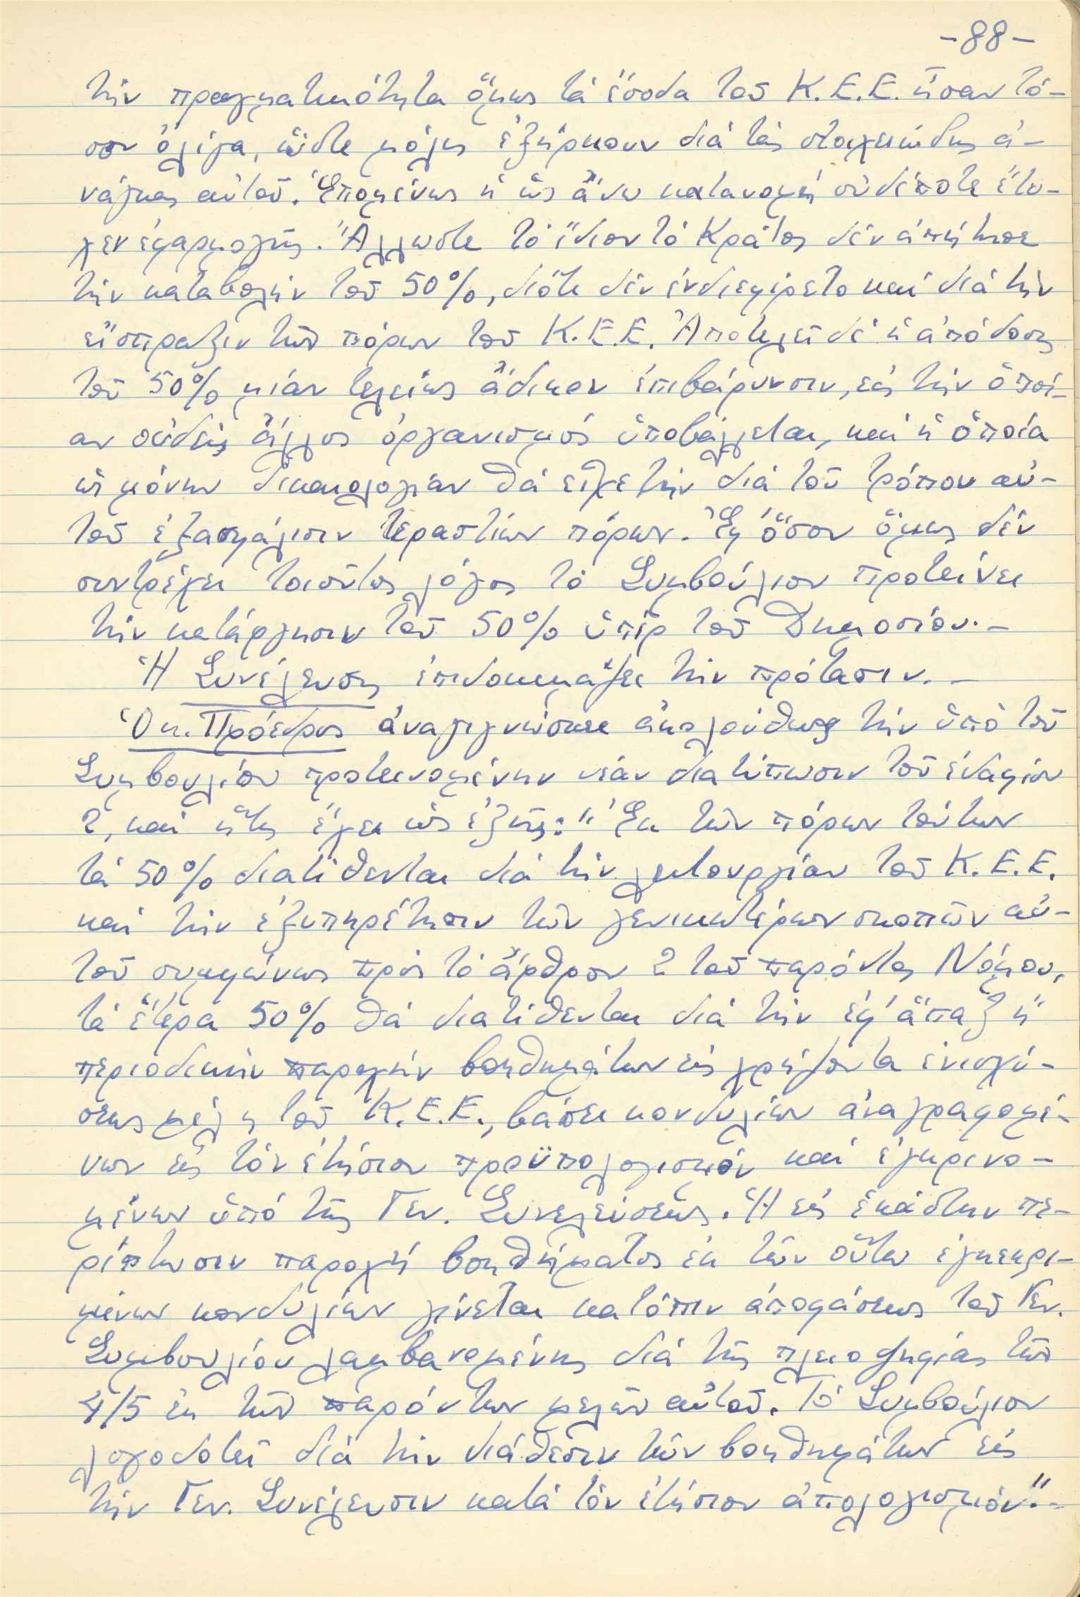 -88-
τὴν πραγματικότητα ὅμως τὰ ἔσοδα τοῦ Κ.Ε.Ε. ἦσαν τό-
σον ὀλίγα, ὥστε μόλις ἐξήρκουν διὰ τὰς στοιχειώδεις ἀ-
νάγκας αὐτοῦ. Ἑπομένως ἡ ὡς ἄνω κατανομὴ οὐδέποτε ἔτυ-
χεν ἐφαρμογῆς. Ἄλλωστε τὸ ἴδιον τὸ Κράτος δὲν ἀπῄτησε
τὴν καταβολὴν τοῦ 50%, διότι δὲν ἐνδιεφέρετο καὶ διὰ τὴν
εἴσπραξιν τῶν πόρων τοῦ Κ.Ε.Ε. Ἀποτελεῖ δὲ ἡ ἀπόδοσις
τοῦ 50% μίαν τελείως ἄδικον ἐπιβάρυνσιν, εἰς τὴν ὁποί-
αν οὐδεὶς ἄλλος ὀργανισμὸς ὑποβάλλεται, καὶ ἡ ὁποία
ὡς μόνην δικαιολογίαν θὰ εἶχε τὴν διὰ τοῦ τρόπου αὐ-
τοῦ ἐξασφάλισιν τεραστίων πόρων. Ἐφ' ὅσον ὅμως δὲν
συντρέχει τοιοῦτος λόγος τὸ Συμβούλιον προτείνει
τὴν κατάργησιν τοῦ 50% ὑπὲρ τοῦ Δημοσίου.-
Ἡ Συνέλευσις ἐπιδοκιμάζει τὴν πρότασιν.-
Ὁ κ. Πρόεδρος ἀναγιγνώσκει ἀκολούθως τὴν ὑπὸ τοῦ
Συμβουλίου προτεινομένην νέαν διατύπωσιν τοῦ ἐδαφίου
2, καὶ ἥτις ἔχει ὡς ἑξῆς: " Ἐκ τῶν πόρων τούτων
τὰ 50% διατίθενται διὰ τὴν λειτουργίαν τοῦ Κ.Ε.Ε.
καὶ τὴν ἐξυπηρέτησιν τῶν γενικωτέρων σκοπῶν αὐ-
τοῦ συμφώνως πρὸς τὸ ἄρθρον 2 τοῦ παρόντος Νόμου,
τὰ ἕτερα 50% θὰ διατίθενται διὰ τὴν ἐφ' ἅπαξ ἢ
περιοδικὴν παροχὴν βοηθημάτων εἰς χρήζοντα ἐνισχύ-
σεως μέλη τοῦ Κ.Ε.Ε., βάσει κονδυλίων ἀναγραφομέ-
νων εἰς τὸν ἐτήσιον προϋπολογισμὸν καὶ ἐγκρινο-
μένων ὑπὸ τῆς Γεν. Συνελεύσεως. Ἡ εἰς ἑκάστην πε-
ρίπτωσιν παροχὴ βοηθήματος ἐκ τῶν οὕτω ἐγκεκρι-
μένων κονδυλίων γίνεται κατόπιν ἀποφάσεως τοῦ Γεν.
Συμβουλίου λαμβανομένης διὰ τῆς πλειοψηφίας τῶν
4/5 ἐκ τῶν παρόντων μελῶν αὐτοῦ. Τὸ Συμβούλιον
λογοδοτεῖ διὰ τὴν διάθεσιν τῶν βοηθημάτων εἰς
τὴν Γεν. Συνέλευσιν κατὰ τὸν ἐτήσιον ἀπολογισμόν".-